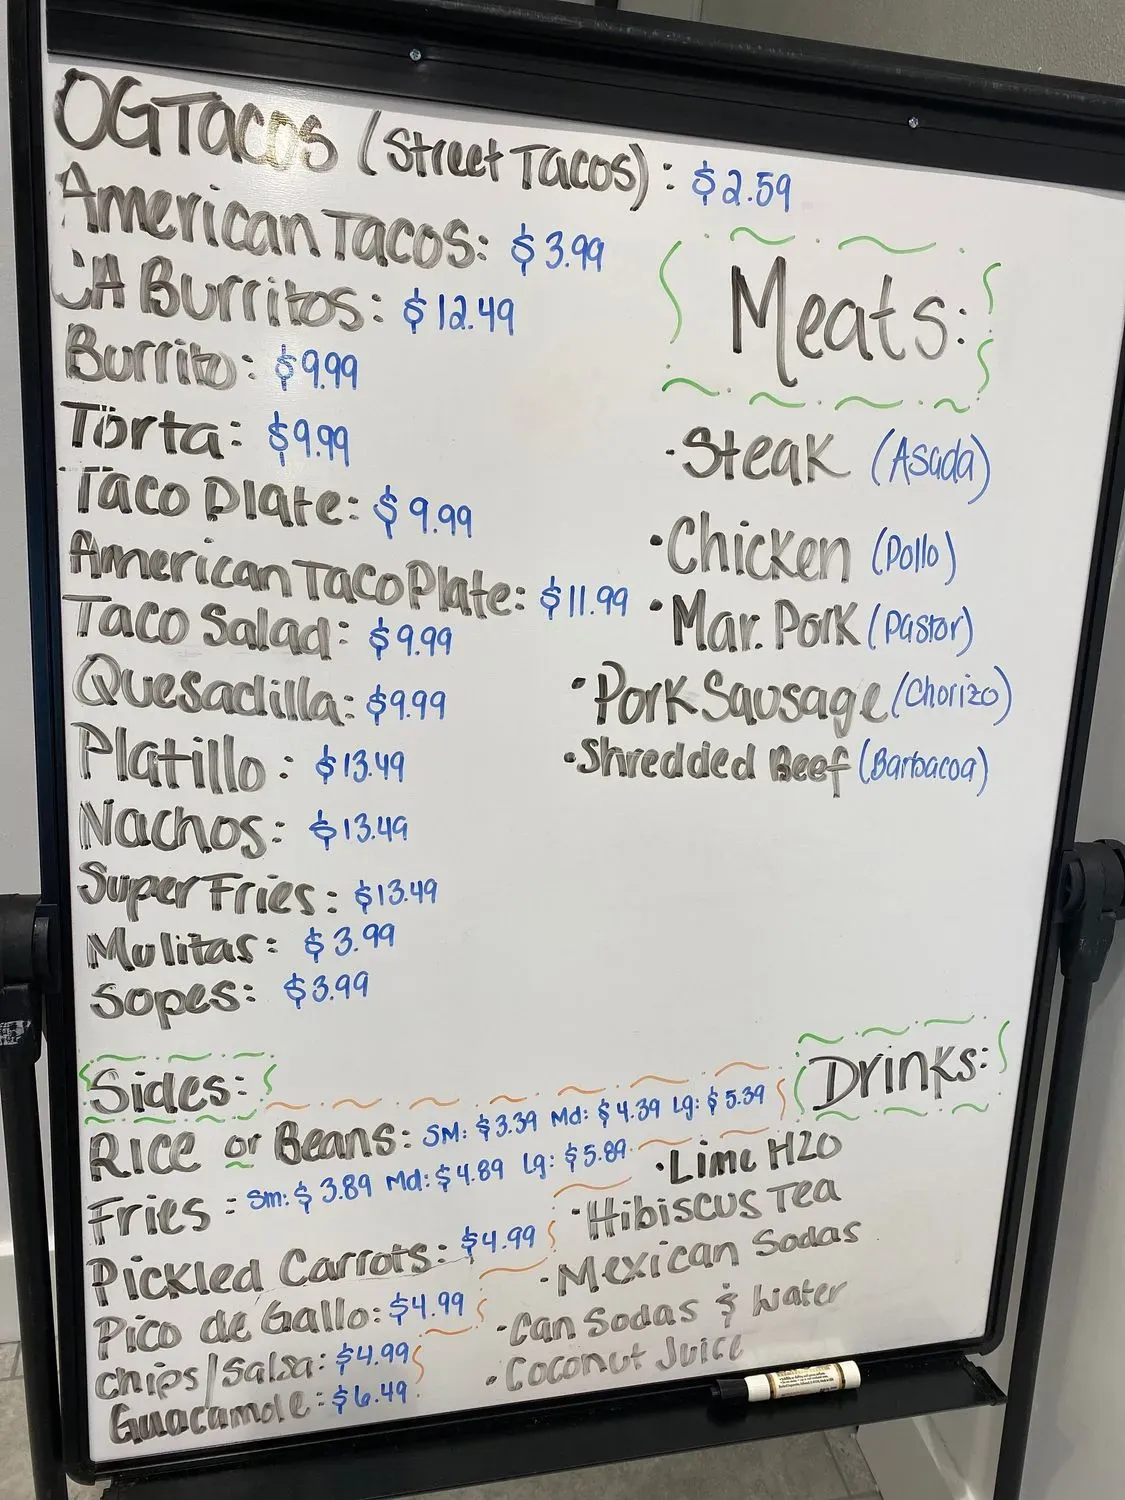 OG Tacos (Street Tacos): $2.59
American Tacos: $3.99
CA Burritos: $12.49
Burrito: $9.99
Torta: $9.99
Taco Plate: $9.99
American Taco Plate: $11.99
Taco Salad: $9.99
Quesadilla: $9.99
Platillo: $13.49
Nachos: $13.49
Super Fries: $13.49
Mulitas: $3.99
Sopes: $3.99
Meats:
•Steak (Asada)
•Chicken (Pollo)
•Mar. Pork (Pastor)
•Pork Sausage (Chorizo)
•Shredded Beef (Barbacoa)
Sides:
Rice or Beans: SM: $3.39 Md: $4.39 Lg: $5.39
Fries: Sm: $3.89 Md: $4.89 Lg: $5.89
Pickled Carrots: $4.99
Pico de Gallo: $4.99
Chips/Salsa: $4.99
Guacamole: $6.49
Drinks:
•Lime H2O
•Hibiscus Tea
•Mexican Sodas
•Can Sodas & Water
•Coconut Juice